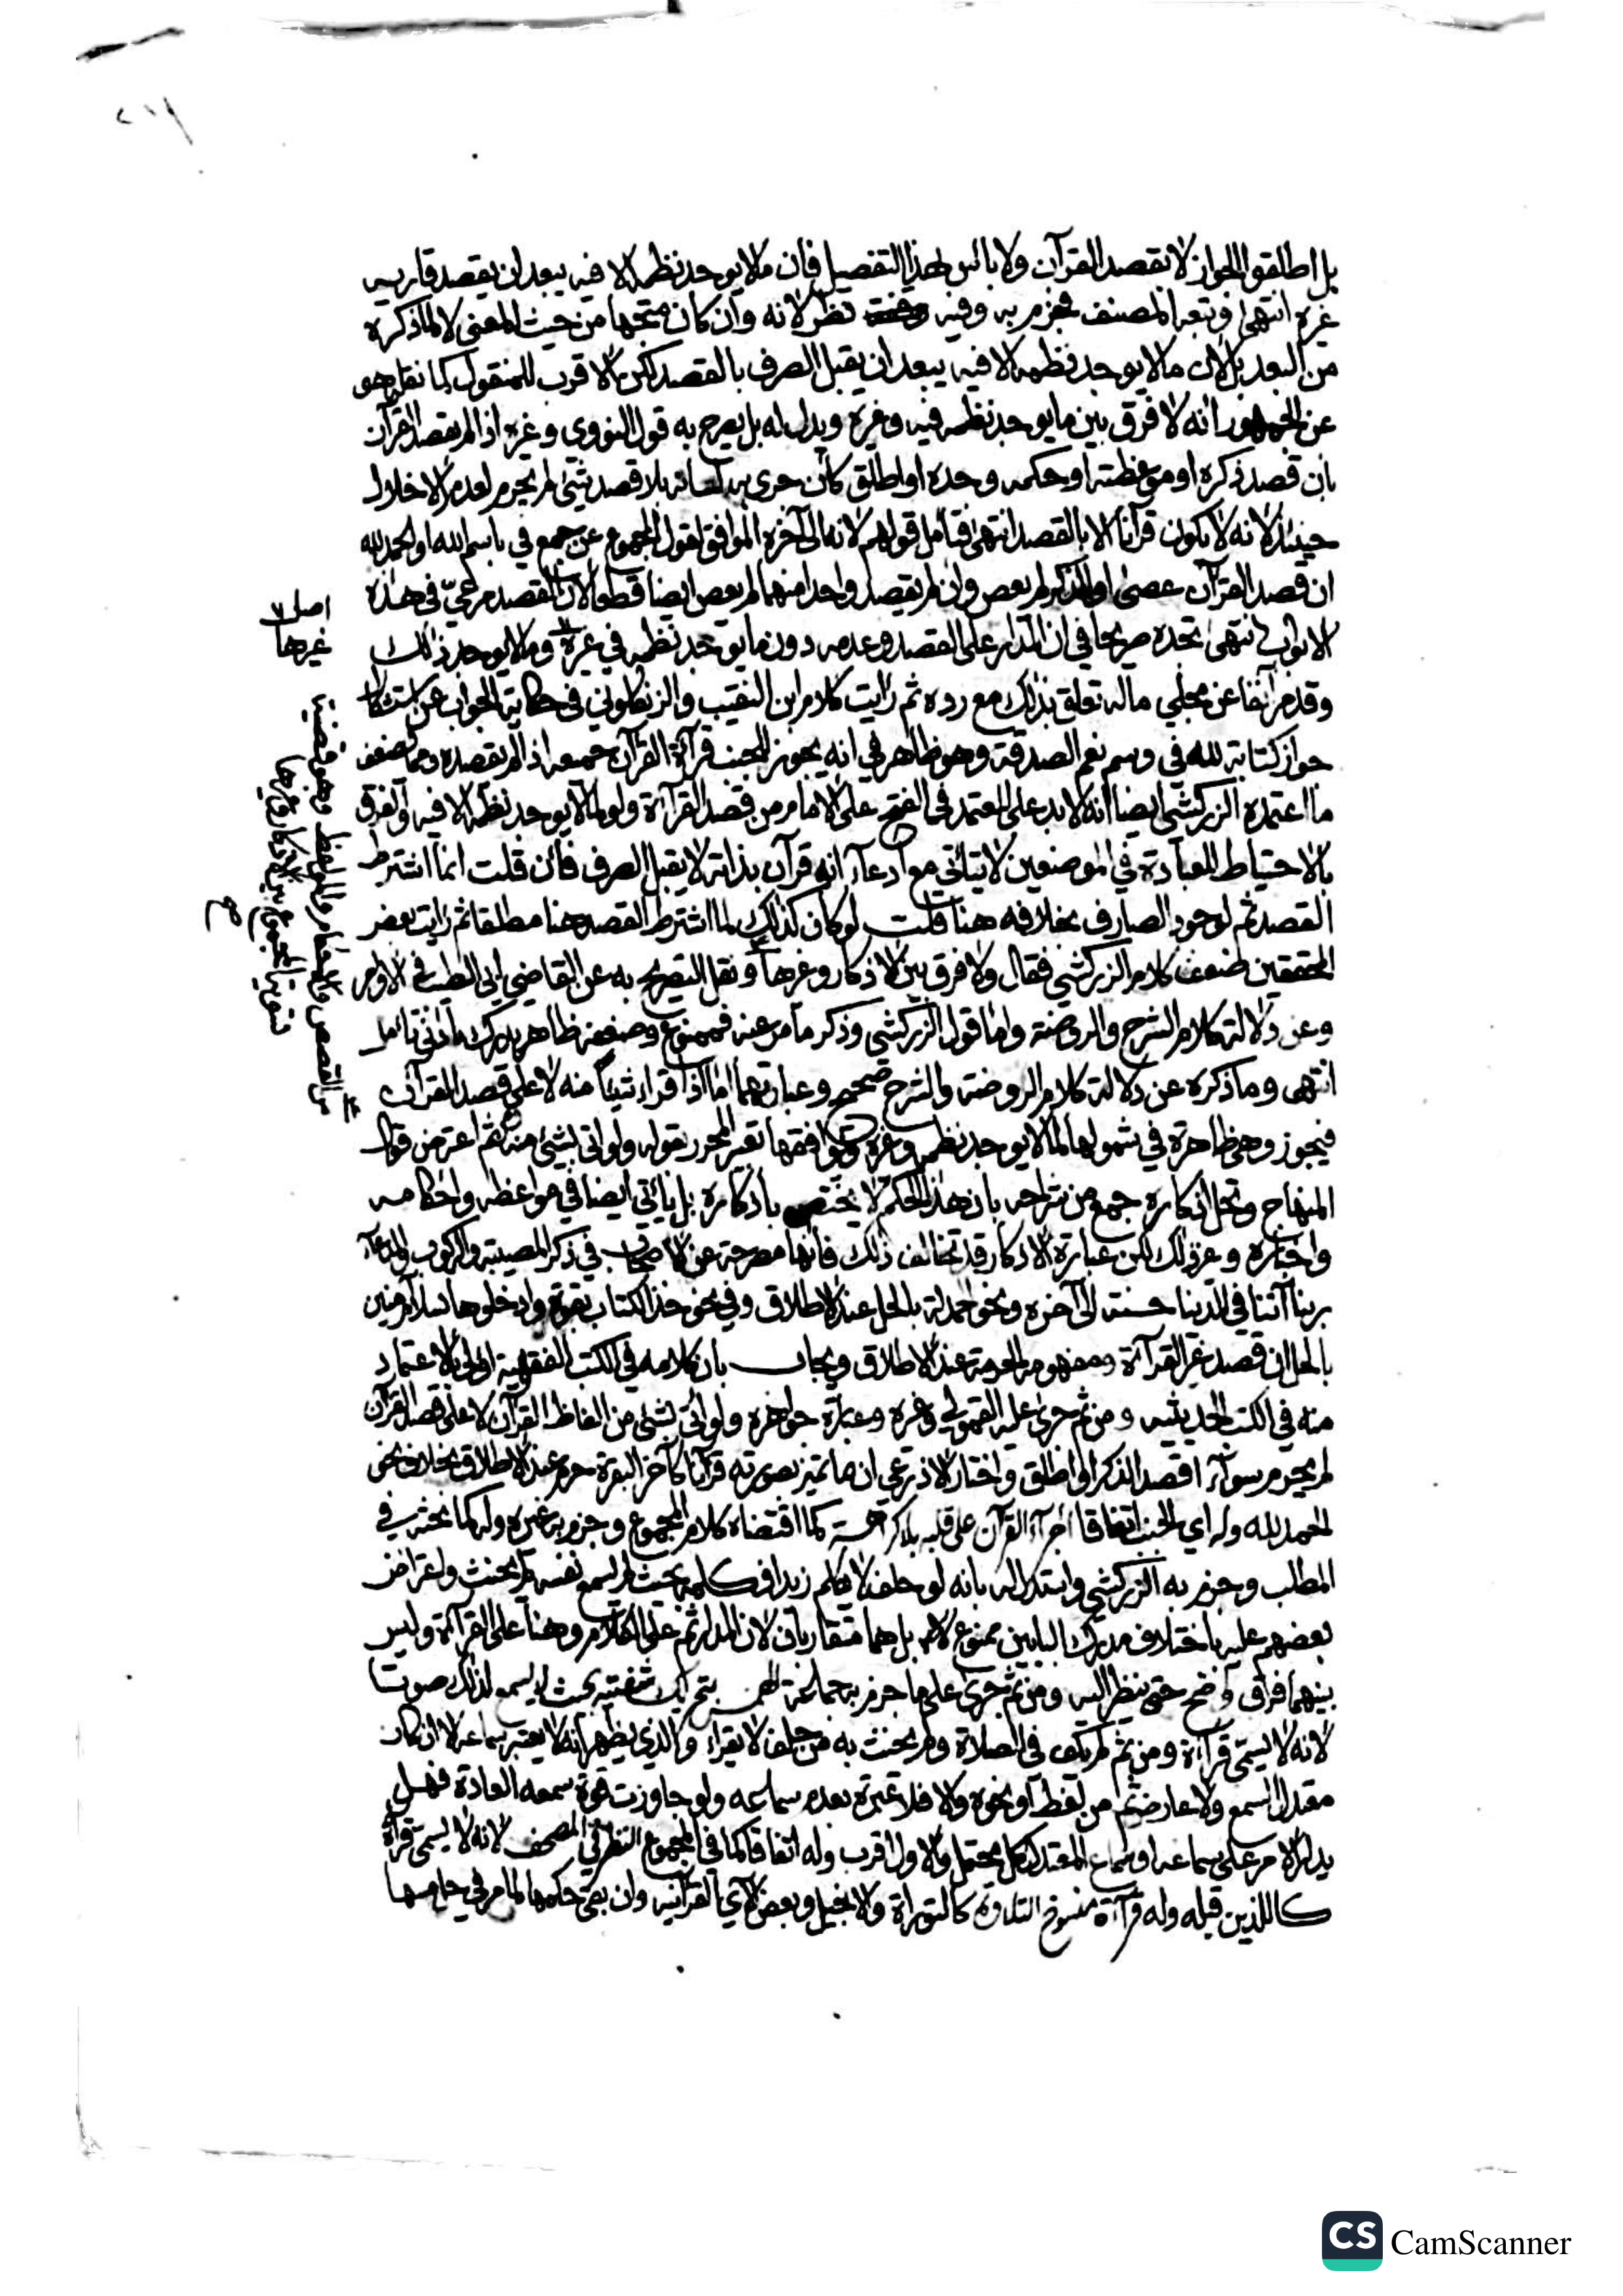 بل اطلقوا الجواز لا بقصد القرآن ولا باس بهذا التفصيل فان ما لا يوجد نظمه الا فيه يبعد ان يقصد قاريه
غيره انتهى وتبعه المصنف فجزم به وفيه نظر لانه وان كان متجها من حيث المعنى لا لما ذكره
من البعد بل لان ما لا يوجد نظمه الا فيه يبعد ان يقبل الصرف بالقصد لكن الاقرب للمنقول كما نقله هو
عن الجمهور انه لا فرق بين ما يوجد نظمه فيه وغيره ويدل له بل يصرح به قول النووي وغيره اذا لم يقصد القرآن
بان قصد ذكره او موعظته او حكمه وحده او اطلق كأن جرى به لسانه بلا قصد شئ لم يحرم لعدم الاخلال
حينئذ لانه لا يكون قرآنا الا بالقصد انتهى فتامل قولهم لانه الى آخره الموافق لقول المجموع عن جمع في باسم الله او الحمد لله
ان قصد القرآن عصى او الذكر لم يعص وان لم يقصد واحدا منهما لم يعص ايضا قطعا لان القصد مرعيّ في هذه
الابواب انتهى تجده صريحا في ان المدار على القصد وعدمه دون ما يوجد نظمه في غيره وما لا يوجد ذلك
وقد مر آنفا عن مجلي ما له تعلق بذلك مع رده ثم رايت كلام ابن النقيب والزنكلوني في حكاية الجواب عن استشكال
جواز كتابة لله في وسم نعم الصدقة وهو ظاهر في انه يجوز للجنب قرآءة القرآن جميعه اذا لم يقصده ومما يضعف
ما اعتمده الزركشي ايضا انه لا بد على المعتمد في الفتح على الامام من قصد القرآءة ولو لما لا يوجد نظمه الا فيه والفرق
بالاحتياط للعبادة في الموضعين لا يتاتى مع ادعاء انه قرآن بذاته لا يقبل الصرف فان قلت انما اشترط
القصد ثم لوجود الصارف بخلافه هنا قلت لو كان كذلك لما اشترط القصد هنا مطلقا ثم رايت بعض
المحققين ضعف كلام الزركشي فقال ولا فرق بين الاذكار وغيرها ونقل التصريح به عن القاضي ابي الطيب في الاوامر
وعن دلالة كلام الشرح والروضة واما قول الزركشي وذكر ما مر عنه فممنوع وضعفه ظاهر يدرك بادنى تامل
انتهى وما ذكره عن دلالة كلام الروضة والشرح صحيح وعبارتهما اما اذا قراء شيئا منه لا على قصد القرآن
فيجوز وهي ظاهرة في شمولها لما لا يوجد نظمه وغيره ويوافقها تعبير المحرر بقوله ولو اتى بشئ منه ثم اعترض قول
المنهاج وتحل اذكاره جمع من شراحه بان هذا الحكم لا يختص باذكاره بل ياتي ايضا في مواعظه واحكامه
واخباره وغير ذلك لكن عبارة الاذكار قد تخالف ذلك فانها مصرحة عن الاصحاب في ذكر المصيبة والركوب والدعاء
بربنا آتنا في الدنيا حسنة الى آخره ونحو الحمدلة بالحل عند الاطلاق وفي نحو خذ الكتاب بقوة وادخلوها بسلام آمنين
بالحل ان قصد غير القرآءة ومفهومه الحرمة عند الاطلاق ويجاب بان كلامه في الكتب الفقهية اولى بالاعتماد
منه في الكتب الحديثيه ومن ثم جرى عليه القمولي وغيره وعبارة جواهره ولو اتى بشئ من الفاظ القرآن لا على قصد القرآن
لم يحرم سوآء اقصد الذكر او اطلق واختار الاذرعي ان ما تميز بصورته قرآنا كآخر البقرة حرم عند الاطلاق بخلاف نحو
الحمد لله وله اي للجنب اتفاقا اجرآء القرآن على قلبه بلا كراهة كما اقتضاه كلام المجموع وجزم به غيره وله كما بحثه في
المطلب وجزم به الزركشي واستدل له بانه لو حلف لا يكلم زيدا فكلمه بحيث لم يسمع نفسه لم يحنث واعتراض
بعضهم عليه باختلاف مدرك البابين ممنوع بل هما متقاربان لان المدار ثم على الكلام وهنا على القرآءة وليس
بينهما فرق واضح حتى ينظر اليه ومن ثم جرى على ما جزم به جماعة الهمس بتحريك شفتيه بحيث لا يسمع لذلك صوتا
لانه لا يسمى قرآءة ومن ثم لم يكف في الصلاة ولم يحنث به من حلف لا يقراء والذي يظهر انه لا يعتبر سماعه الا ان كان
معتدل السمع ولا عارض ثم من لغط او نحوه والا فلا عبرة بعدم سماعه ولو جاوزت قوة سمعه العادة فهل
يدار الامر على سماعه او سماع المعتدل كل محتمل والاول اقرب وله اتفاقا كما في المجموع النظر في المصحف لانه لا يسمى قرآءة
كاللذين قبله وله قرآءة منسوخ التلاوة كالتوراة والانجيل وبعض الآي القرآنية وان بقى حكمها لما مر في حل مسها
اصل
غيرها
CS CamScanner